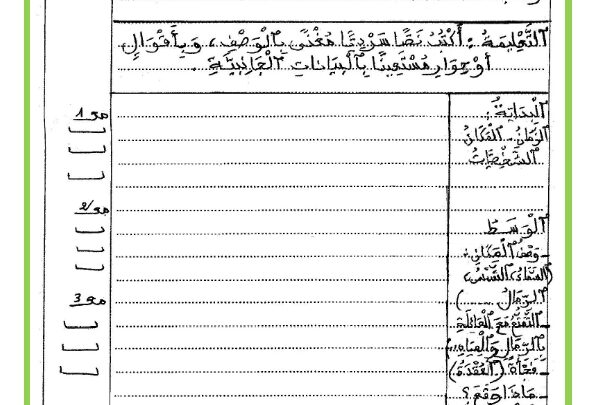 التَّعْلِيمَةُ : أَكْتُبُ نَصًّا سَرْدِيًّا مُغْنًى بِالْوَصْفِ ، وَبِأَقْوَالٍ
أَوْ حِوَارٍ مُسْتَعِينًا بِالْبَيَانَاتِ الْجَانِبِيَّةِ .
مع 1
الْبِدَايَةُ :
الزَّمَانُ - الْمَكَانُ
الشَّخْصِيَّاتُ
مع 2
الْوَسَطُ
- وَصْفُ الْمَكَانِ :
(السَّمَاءُ، الشَّمْسُ،
الرِّمَالُ ......)
مع 3
- التَّمَتُّعُ مَعَ الْعَائِلَةِ
بِالرِّمَالِ وَالْمِيَاهِ...
- فَجْأَةً (الْعُقْدَةُ)
- مَاذَا وَقَعَ ؟